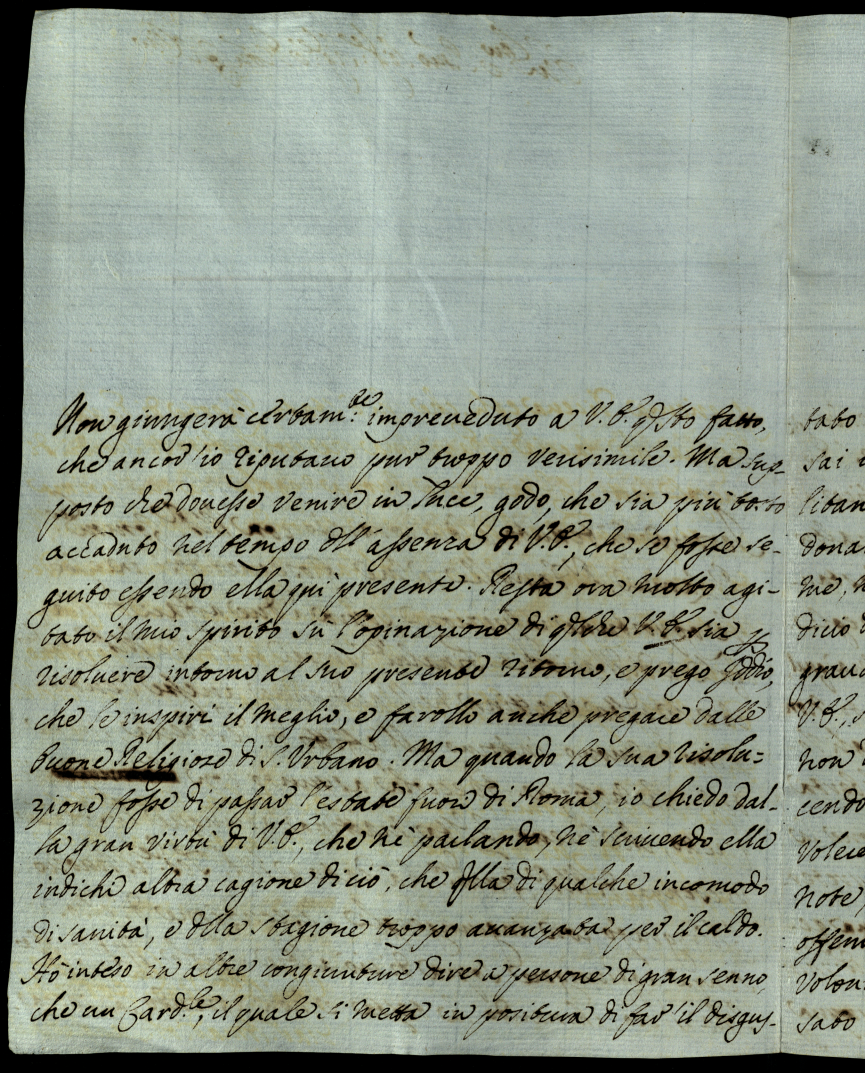 Non giungerà certam.te impreveduto a V.E. q.sto fatto,
che ancor'io riputavo pur troppo verisimile. Ma sup-
posto che dovesse venire in luce, godo, che sia più tosto
accaduto nel tempo dell'assenza di V.E., che se fosse se-
guito essendo ella qui presente. Resta ora molto agi-
tato il mio spirito sù l'opinazione di q.llo che V.E. sia p
risolvere intorno al suo presente ritorno, e prego Iddio,
che le inspiri il meglio, e farollo anche pregare dalle
buone Religiose di S. Urbano. Ma quando la sua risolu=
zione fosse di passar l'estate fuori di Roma, io chiedo dal-
la gran virtù di V.E., che nè parlando, nè scrivendo ella
indichi altra cagione di ciò, che q.lla di qualche incomodo
di sanità, e della stagione troppo avanzata per il caldo.
Hò inteso in altre congiunture dire a persone di gran senno,
che un Card.le, il quale si metta in positura di far il disgus-
tato
sai
liban
dona
me,
dicio
grand
V.E.,
non
cendo
volere
note,
offem
volon
sato